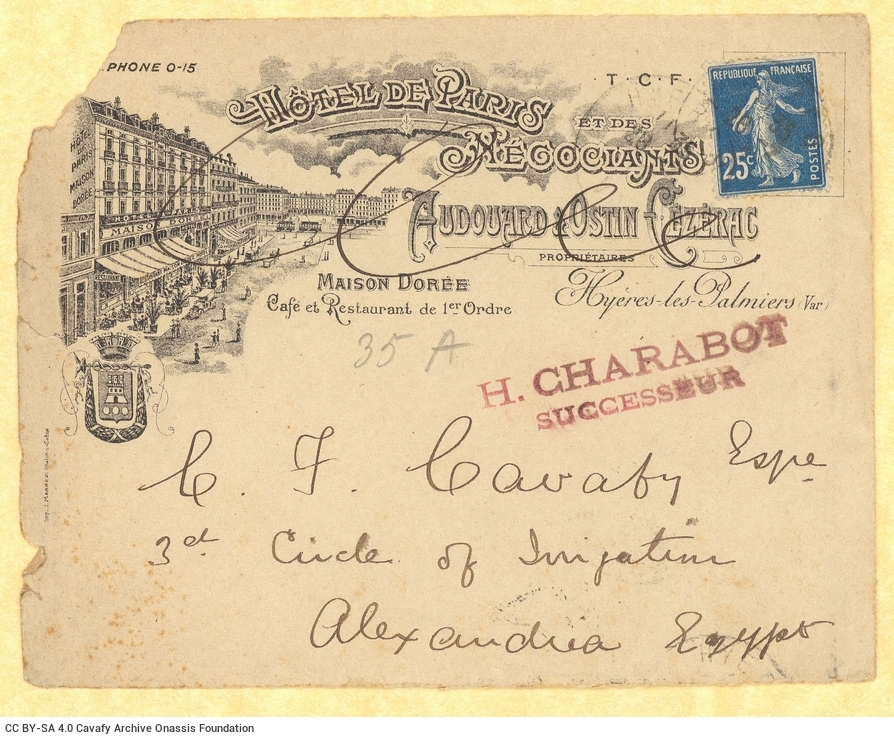 PHONE 0-15
T.C.F.
HÔTEL DE PARIS
ET DES
NÉGOCIANTS
REPUBLIQUE FRANÇAISE
25c
POSTES
HÔTEL
DE
PARIS
MAISON
DORÉE
MAISON DORÉE
AUDOUARD & OSTIN-CÉZÉRAC
PROPRIÉTAIRES
MAISON DORÉE
Café et Restaurant de 1er Ordre
Hyères-les-Palmiers (Var)
35 A
H. CHARABOT
SUCCESSEUR
C. F. Cavafy Esqe
3rd Circle of Irrigation
Alexandria Egypt
CC BY-SA 4.0 Cavafy Archive Onassis Foundation